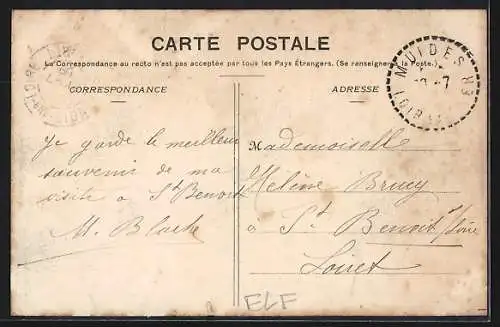 CARTE POSTALE
La Correspondance au recto n'est pas acceptée par tous les Pays Étrangers. (Se renseigner à la Poste.)
CORRESPONDANCE
ADRESSE
MUIDES
LOIR
Je garde le meilleur
souvenir de ma
visite à St Benoit
M.
Mademoiselle
Hélène Brucy
à St Benoit s/Loire
Loiret
ELF